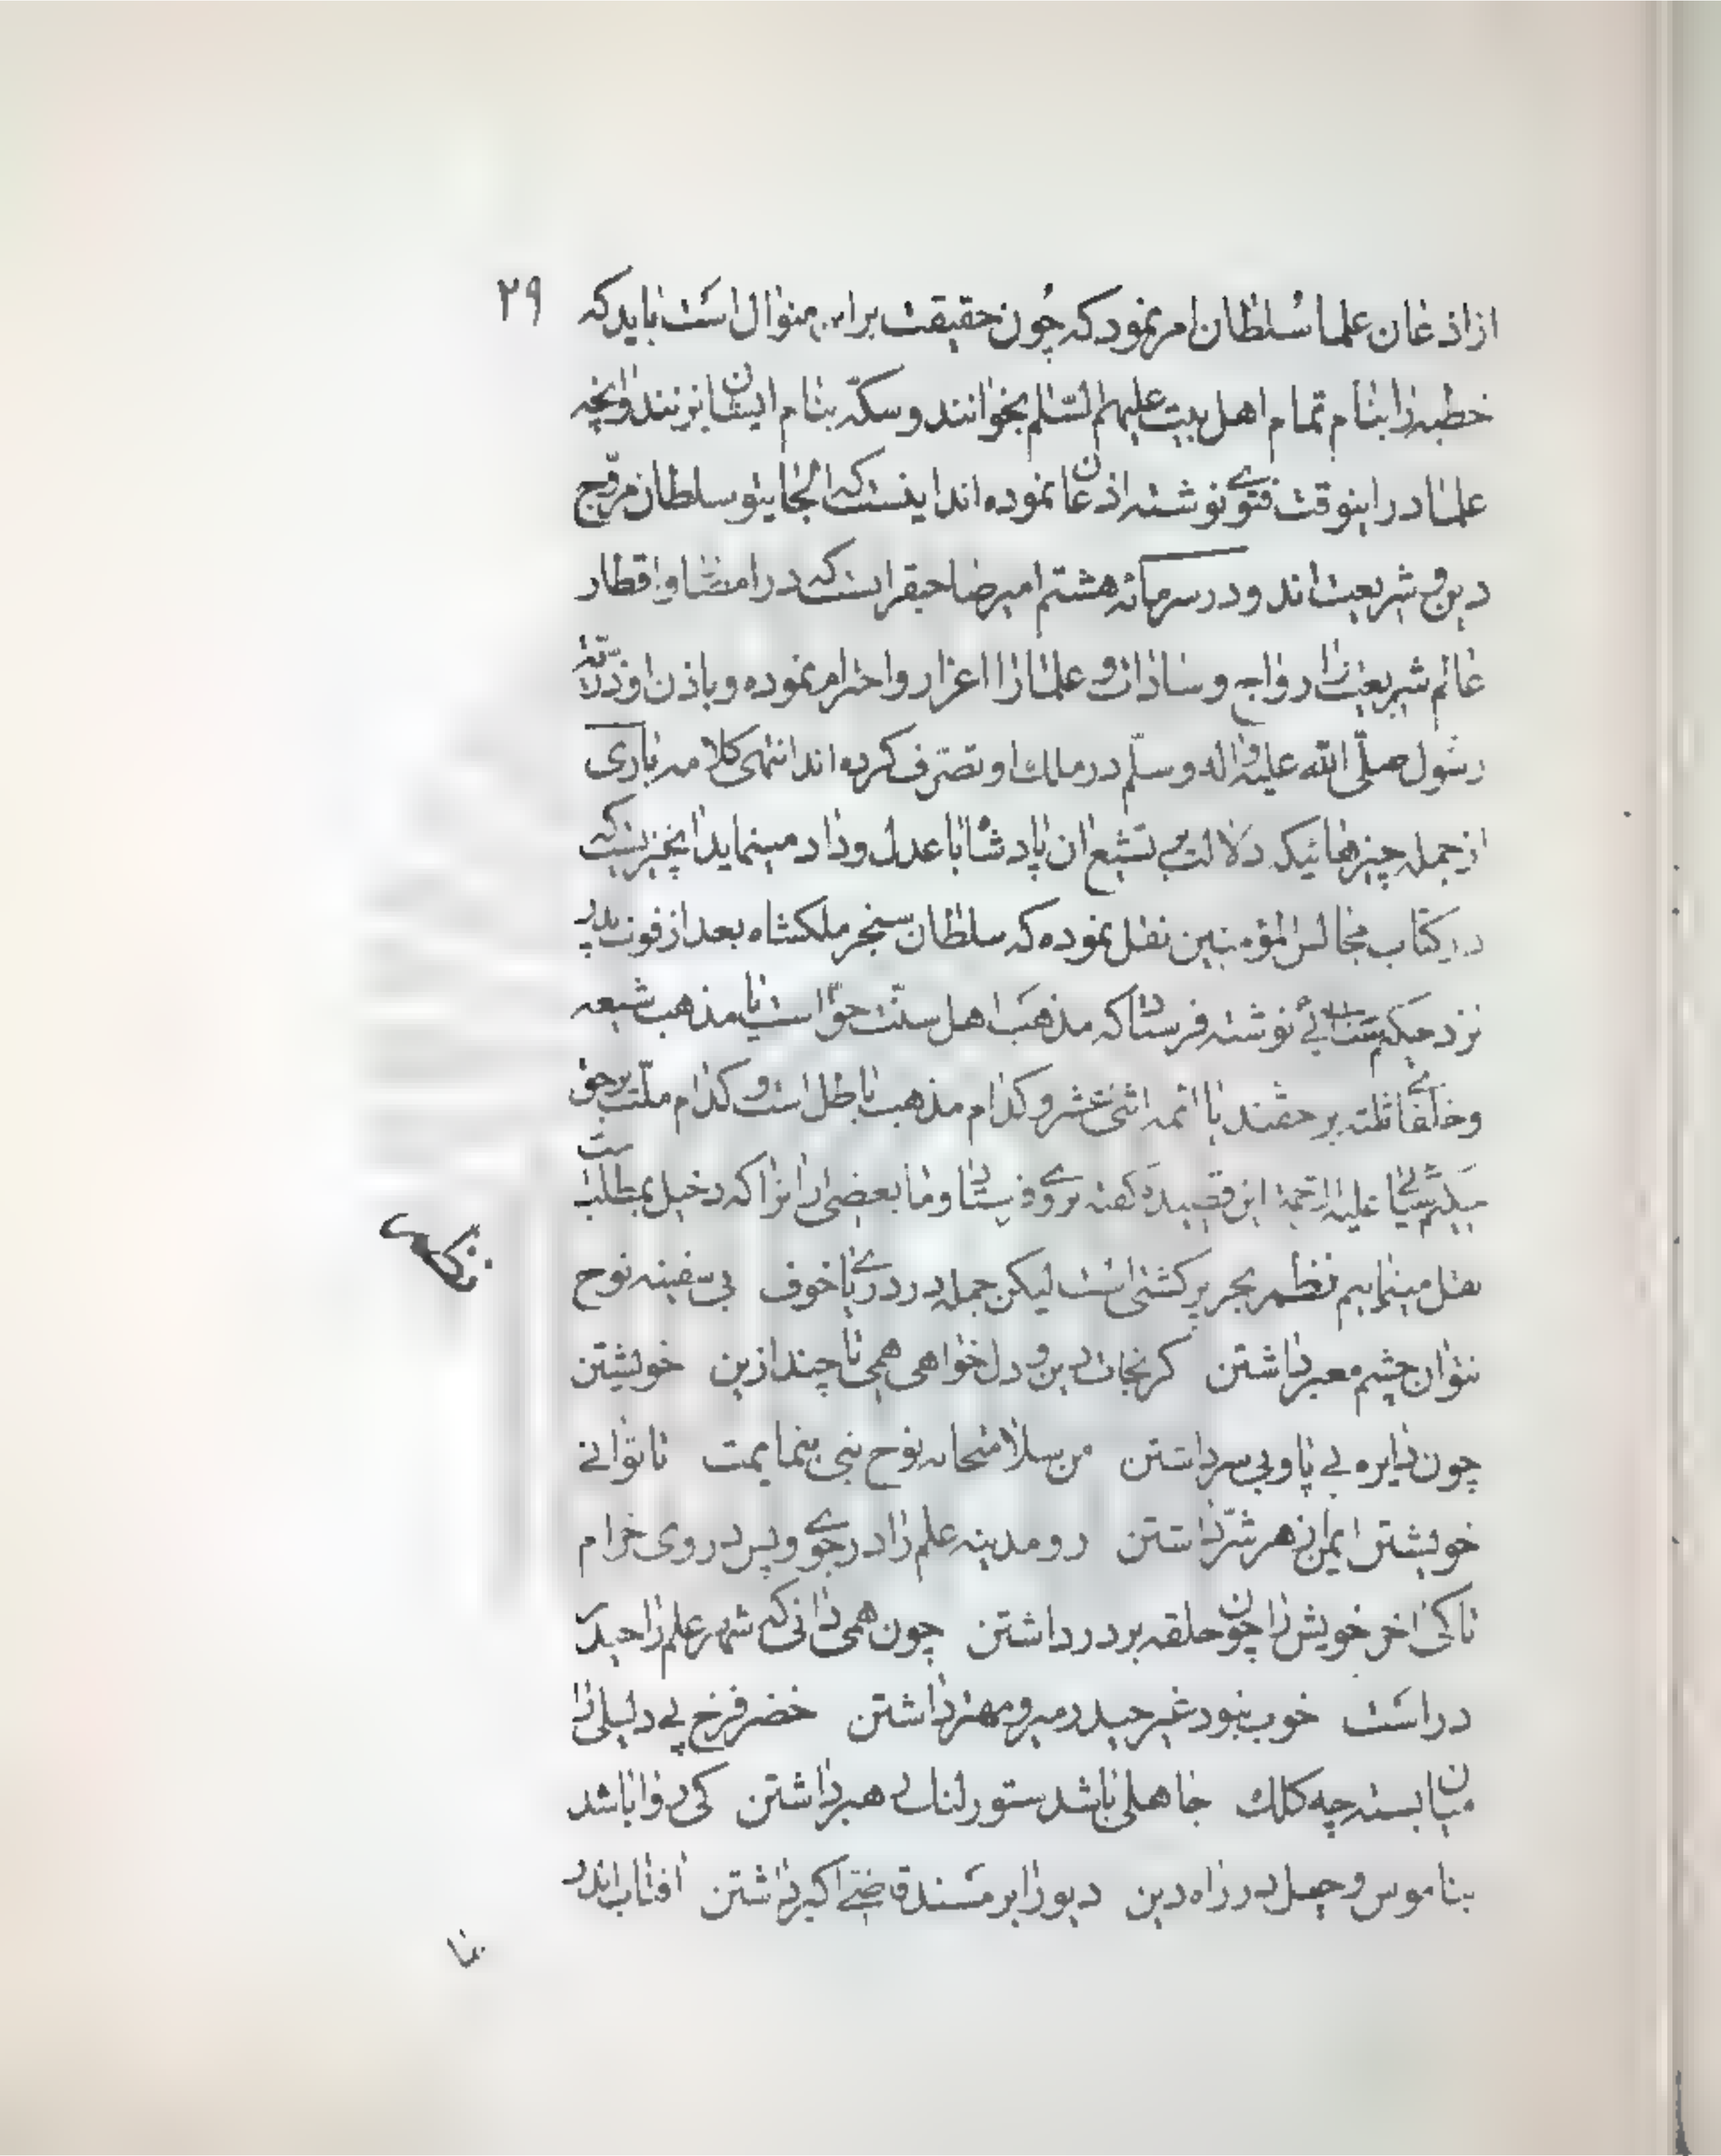 ۲۹
از اذعان علما سلطان امر نمود که چون حقیقت براین منوال است باید که
خطبه را بنام تمام اهل بیت علیهم السّلم بخوانند و سکّه بنام ایشان بزنند و آنچه
علما در اینوقت فتوی نوشته اذعان نموده اند اینست که الجایتو سلطان مروّج
دین و شریعت اند و در سرمائه هشتم امیر صاحبقرانست که در امصار و اقطار
عالم شریعت را رواج و سادات و علما را اعزاز و احترام نموده و باذن او ذرّیّة
رسول صلّی الله علیه و اله و سلّم در ملک او تصرّف کرده اند انتهی کلامه باری
از جمله چیزهائیکه دلالت بر تشیّع آن پادشاه با عدل و داد مینماید آنچیزیست که
در کتاب مجالس المؤمنین نقل نموده که سلطان سنجر ملکشاه بعد از فوت پدر
نزد حکیم سنائی نوشته فرستاد که مذهب اهل سنّت حقّ است یا مذهب شیعه
و خلفای ثلثه بر حقند یا ائمه اثنی عشر و کدام مذهب باطل است و کدام ملّت بر حق
حکیم سنائی علیه الرحمة این قصیده گفته بر وی فرستاد و ما بعضی را نرا که دخیل بمطلبست
نقل مینماییم نظم بحر پر کشتی است لیکن جمله در دریای خوف بی سفینه نوح
نتوان چشم معبر داشتن گر نجات دین و دل خواهی همی تا چند ازین خویشتن
چون دایره بی پا و بی سر داشتن من سلامتخانه نوح نبی بنمایمت تا توانی
خویشتن ایمن ز هر شرّ داشتن رو مدینه علم را در جوی و پس در وی خرام
تا کی آخر خویش را چون حلقه بر در داشتن چون همی دانی که شهر علم را حیدر
در است خوب نبود غیر حیدر میر و مهتر داشتن خضر فرّخ پی دلیلی را
میان بسته چه کلک جاهلی باشد ستور لنگ رهبر داشتن کی روا باشد
بناموس و حیل در راه دین دیو را بر مسند قاضی اکبر داشتن آفتاب اندر